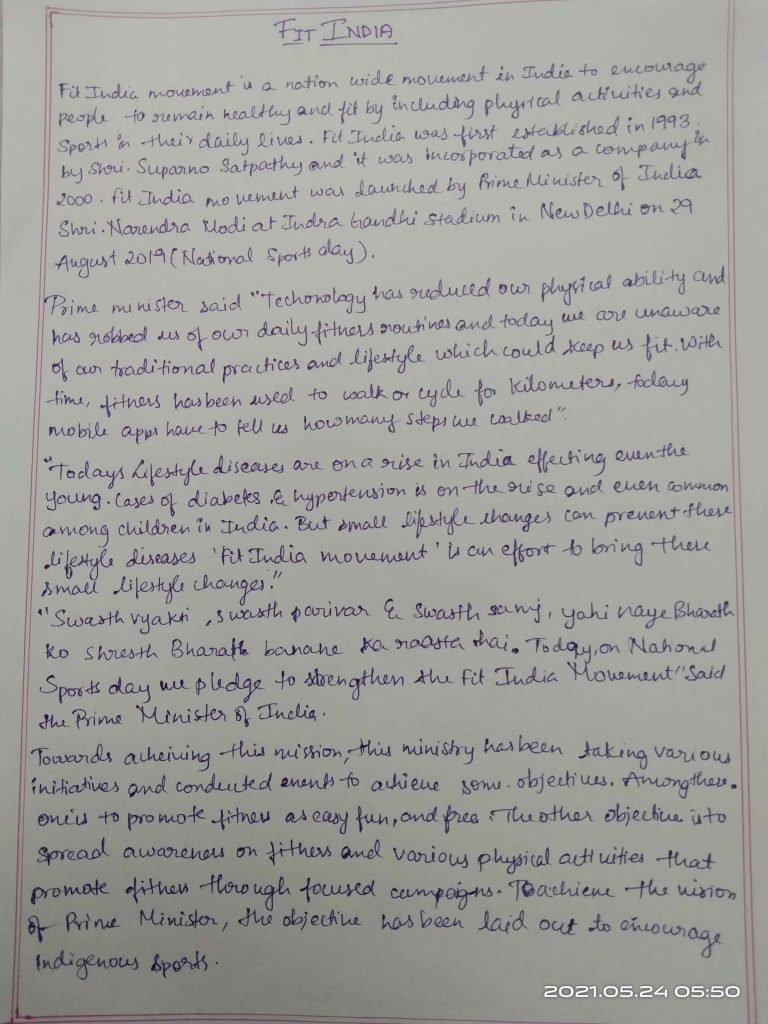 FIT INDIA
Fit India movement is a nation wide movement in India to encourage
people to remain healthy and fit by including physical activities and
Sports in their daily lives. Fit India was first established in 1993
by Shri. Suparno Satpathy and it was incorporated as a company in
2000. Fit India movement was launched by Prime Minister of India
Shri. Narendra Modi at Indra Gandhi Stadium in New Delhi on 29
August 2019 (National Sports day).
Prime minister said "Techonology has reduced our physical ability and
has robbed us of our daily fitness routines and today we are unaware
of our traditional practices and lifestyle which could keep us fit. With
time, fitness has been used to walk or cycle for kilometers, today
mobile apps have to tell us how many steps we walked".
"Todays Lifestyle diseases are on a rise in India effecting even the
young. Cases of diabetes & hypertension is on the rise and even common
among children in India. But small lifestyle changes can prevent these
lifestyle diseases 'Fit India movement' is an effort to bring these
small lifestyle changes."
"Swasth vyakti, swasth parivar & Swasth samj, yahi naye Bharath
ko shresth Bharath banane ka raasta hai. Today, on National
Sports day we pledge to strengthen the Fit India Movement" Said
the Prime Minister of India.
Towards acheiving this mission, this ministry has been taking various
initiatives and conducted events to achieve some objectives. Among these.
one is to promote fitness as easy fun, and free. The other objective is to
spread awareness on fitness and various physical activities that
promote fitness through focused campaigns. To achieve the vision
of Prime Minister, the objective has been laid out to encourage
indigenous sports.
2021.05.24 05:50